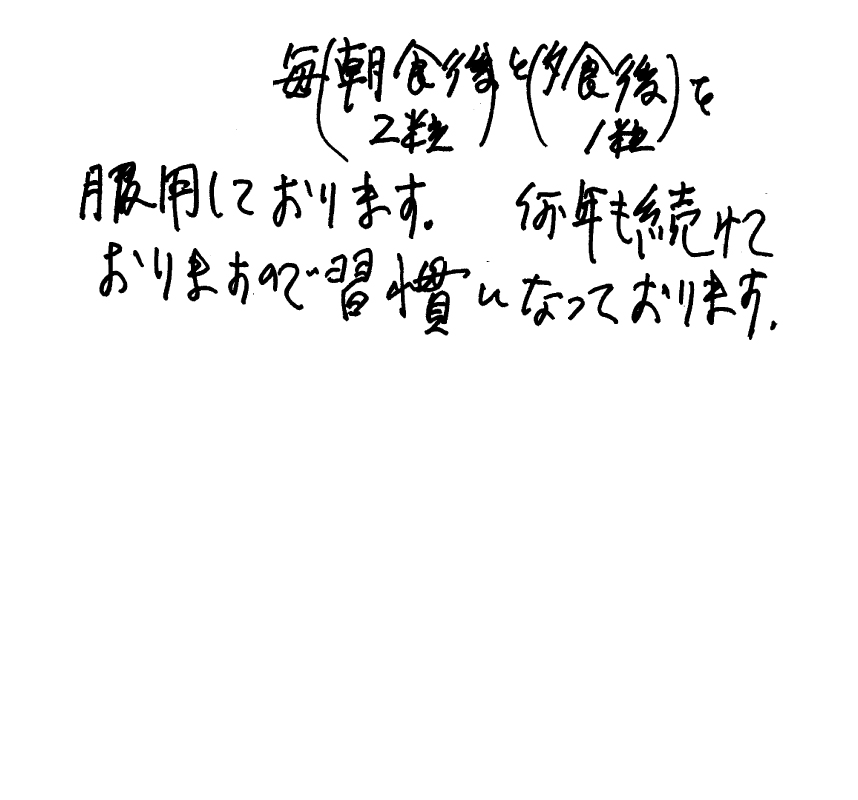 毎(朝食後)と(夕食後)を
2粒 1粒
服用しております。 何年も続けて
おりますので習慣になっております。